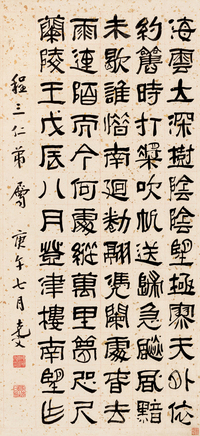 海雲深樹陰陰望極寥天外依
約舊時打槳吹帆送歸急風黯
未歇誰惜南迴翮憑闌處春去
雨連陌而今何處縱萬里夢咫尺
蘭陵王戊辰八月登津樓南望作
程三仁弟屬 庚午七月